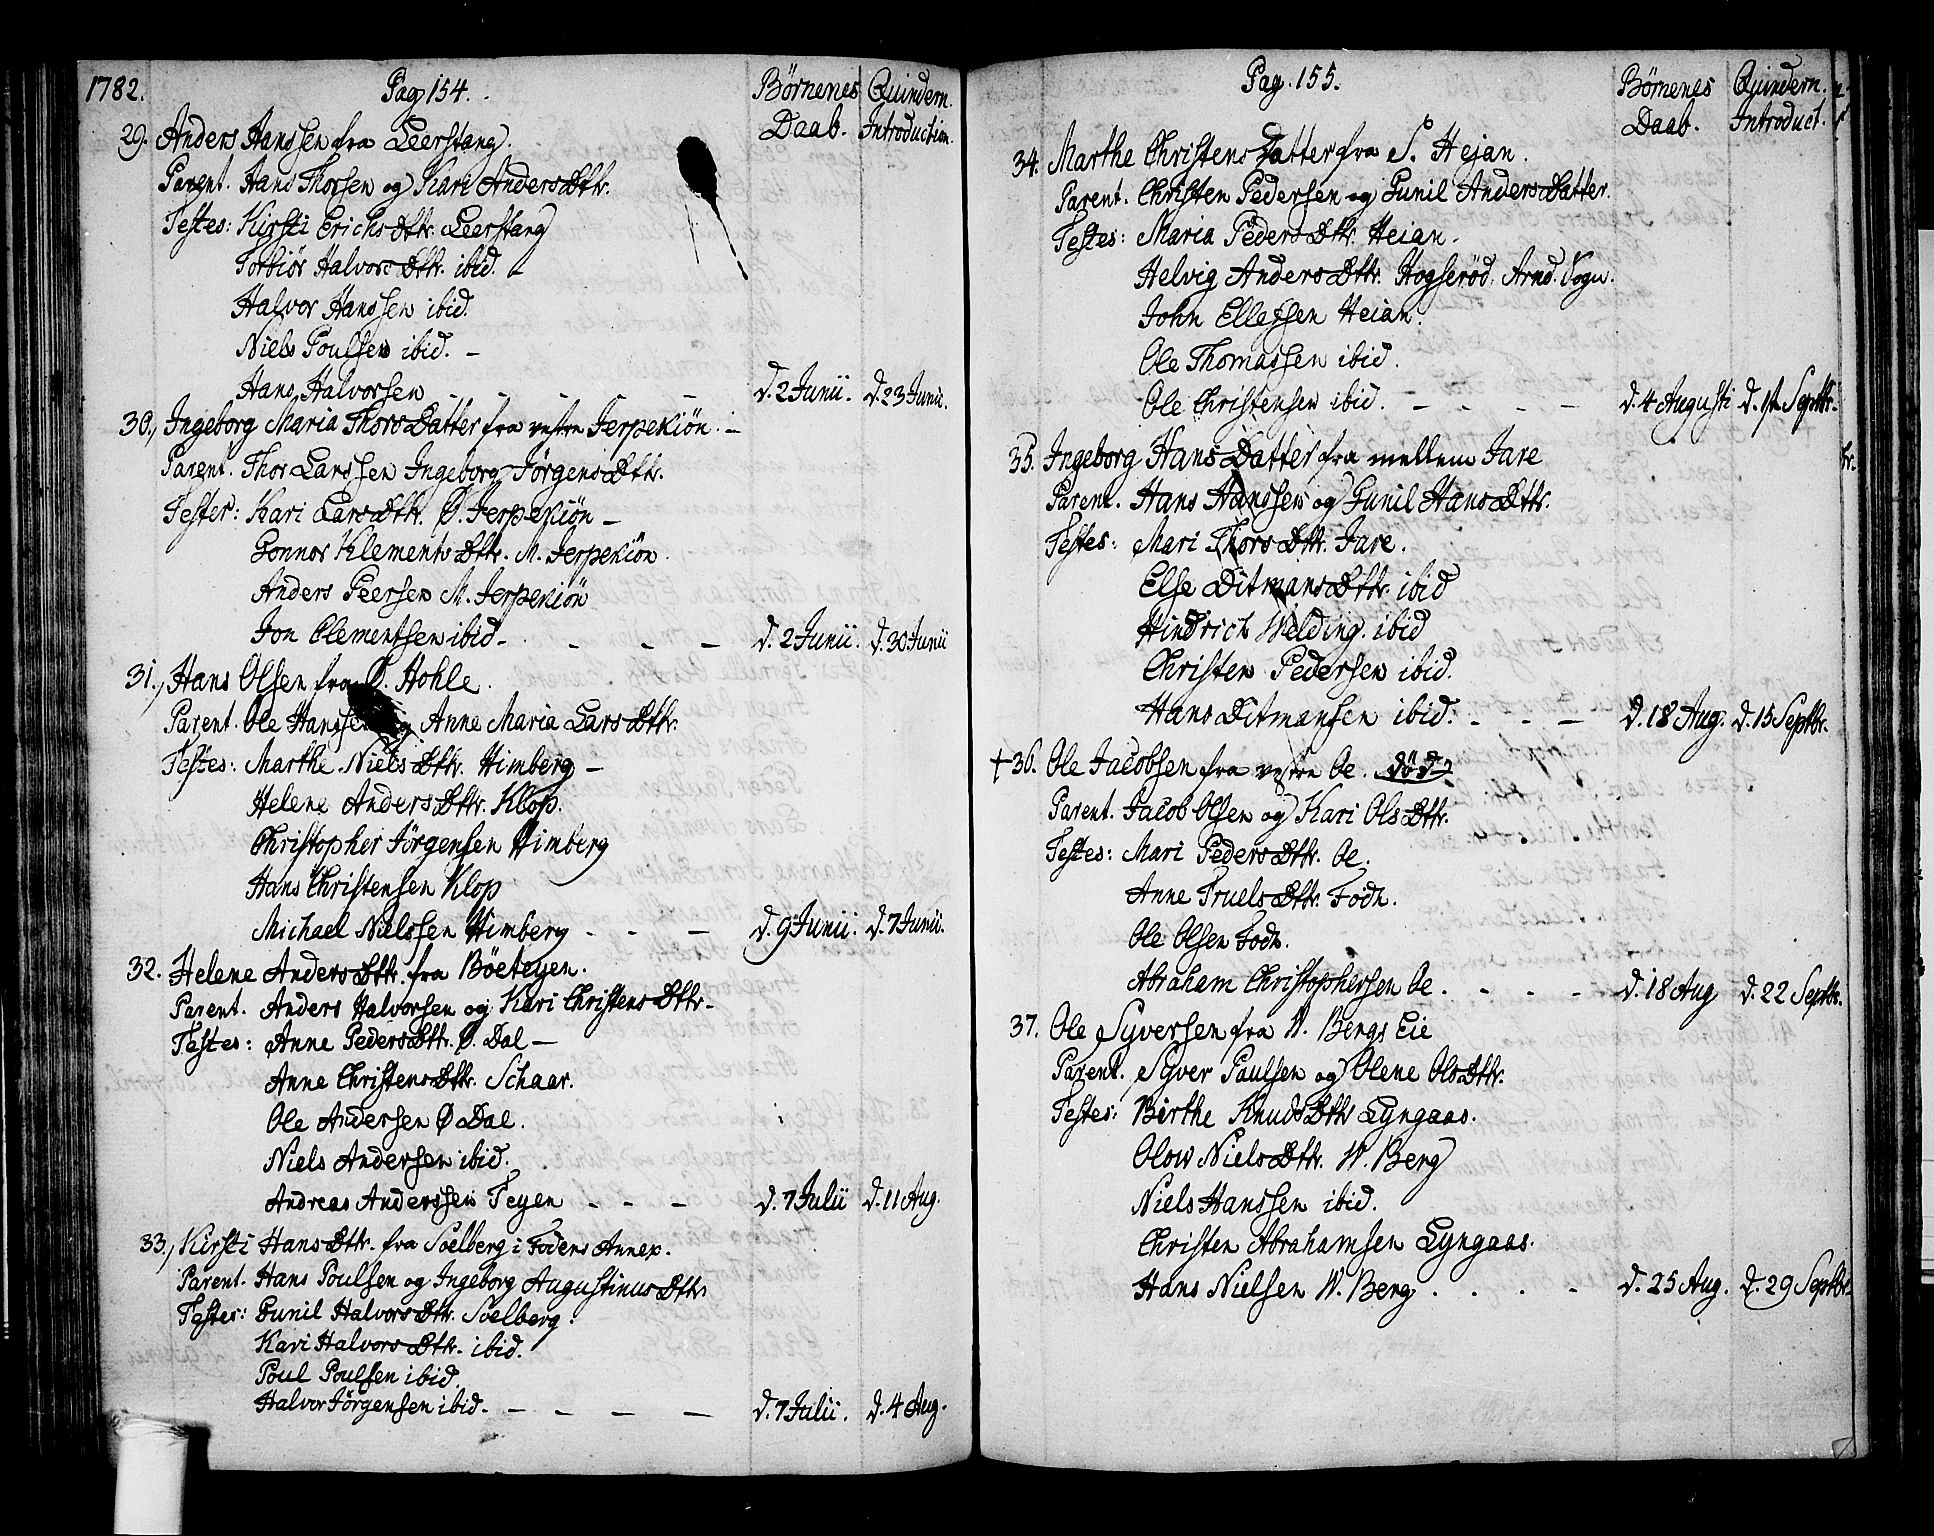 1782. Pag 154. Børnenes Daab. Quindern. Introduction.
29. Anders Hanssen fra Leerstang.
Parent. Hans Thorsen og Kari Anders Dttr.
Testes: Kirsti Erichs Dttr. Leerstang
Torbiør Halvors Dttr. ibid. -
Halvor Hanssen ibid.
Niels Poulsen ibid. -
Hans Halvorsen - - - - d. 2 Junii. d. 23 Junii.
30., Ingeborg Maria Thors Datter fra vestre Jerpekiøn. -
Parent. Thor Larssen Ingeborg Jørgens Dttr.
Testes: Kari Lars Dttr. Ø. Jerpekiøn -
Gonnor Klements Dttr. M. Jerpekiøn.
Anders Peersen M. Jerpekiøn
Jon Clementsen ibid - - - - d. 2 Junii. d. 30 Junii
31., Hans Olsen fra Ø. Hohle.
Parent. Ole Hanssen og Anne Maria Lars Dttr.
Testes: Marthe Niels Dttr. Himberg -
Helene Anders Dttr. Klop.
Christopher Jørgensen Himberg
Hans Christensen Klop
Michael Nielssen Himberg - - - d. 9 Junii. d. 7 Junii.
32. Helene Anders Dttr. fra Böeteyen.
Parent. Anders Halvorsen og Kari Christens Dttr.
Testes: Anne Peders Dttr. Ø. Dal -
Anne Christens Dttr. Schaar.
Ole Andersen Ø Dal.
Niels Andersen ibid.
Andreas Anderssen Teyen - - - d. 7 Julii d. 11 Aug.
33., Kirsti Hans Dttr. fra Soelberg i Fodens Annex.
Parent. Hans Poulsen og Ingeborg Augustinus Dttr
Testes: Gunil Halvors Dttr. Soelberg.
Kari Halvors Dttr. ibid.
Poul Poulsen ibid.
Halvor Jørgensen ibid. - - - - d. 7 Julii. d. 4 Aug.
Pag. 155. Børnenes Daab. Quindern. Introduct.
34. Marthe Christens Datter fra S. Hejan.
Parent. Christen Pedersen og Gunil Anders Datter.
Testes: Maria Peders Dttr. Heian.
Helvig Anders Dttr. Hogserød. Arnd. Sogn.
John Ellefsen Heian.
Ole Thomassen ibid.
Ole Christensen ibid. - - - - d. 4 Augusti d. 1st Septbr.
35. Ingeborg Hans Datter fra mellem Jare
Parent. Hans Hanssen og Gunil Hans Dttr.
Testes: Mari Thors Dttr. Jare.
Else Ditmans Dttr. ibid
Hindrich Welding. ibid
Christen Pedersen ibid.
Hans Ditmansen ibid. - - - d. 18 Aug. d. 15 Septbr.
+ 36. Ole Jacobsen fra vestre Oe. død
Parent. Jacob Olsen og Kari Ols Dttr.
Testes: Mari Peders Dttr. Oe.
Anne Truels Dttr. Fodn.
Ole Olsen Fodn.
Abraham Christophersen Oe. - - - d. 18 Aug d. 22 Septbr.
37. Ole Syversen fra W. Bergs Eie
Parent. Syver Paulsen og Olene Ols Dttr.
Testes: Birthe Knuds Dttr Lyngaas.
Olow Niels Dttr. W. Berg
Niels Hanssen ibid.
Christen Abrahamsen Lyngaas.
Hans Nielsen W. Berg . . . - d. 25 Aug. d. 29 Septbr.